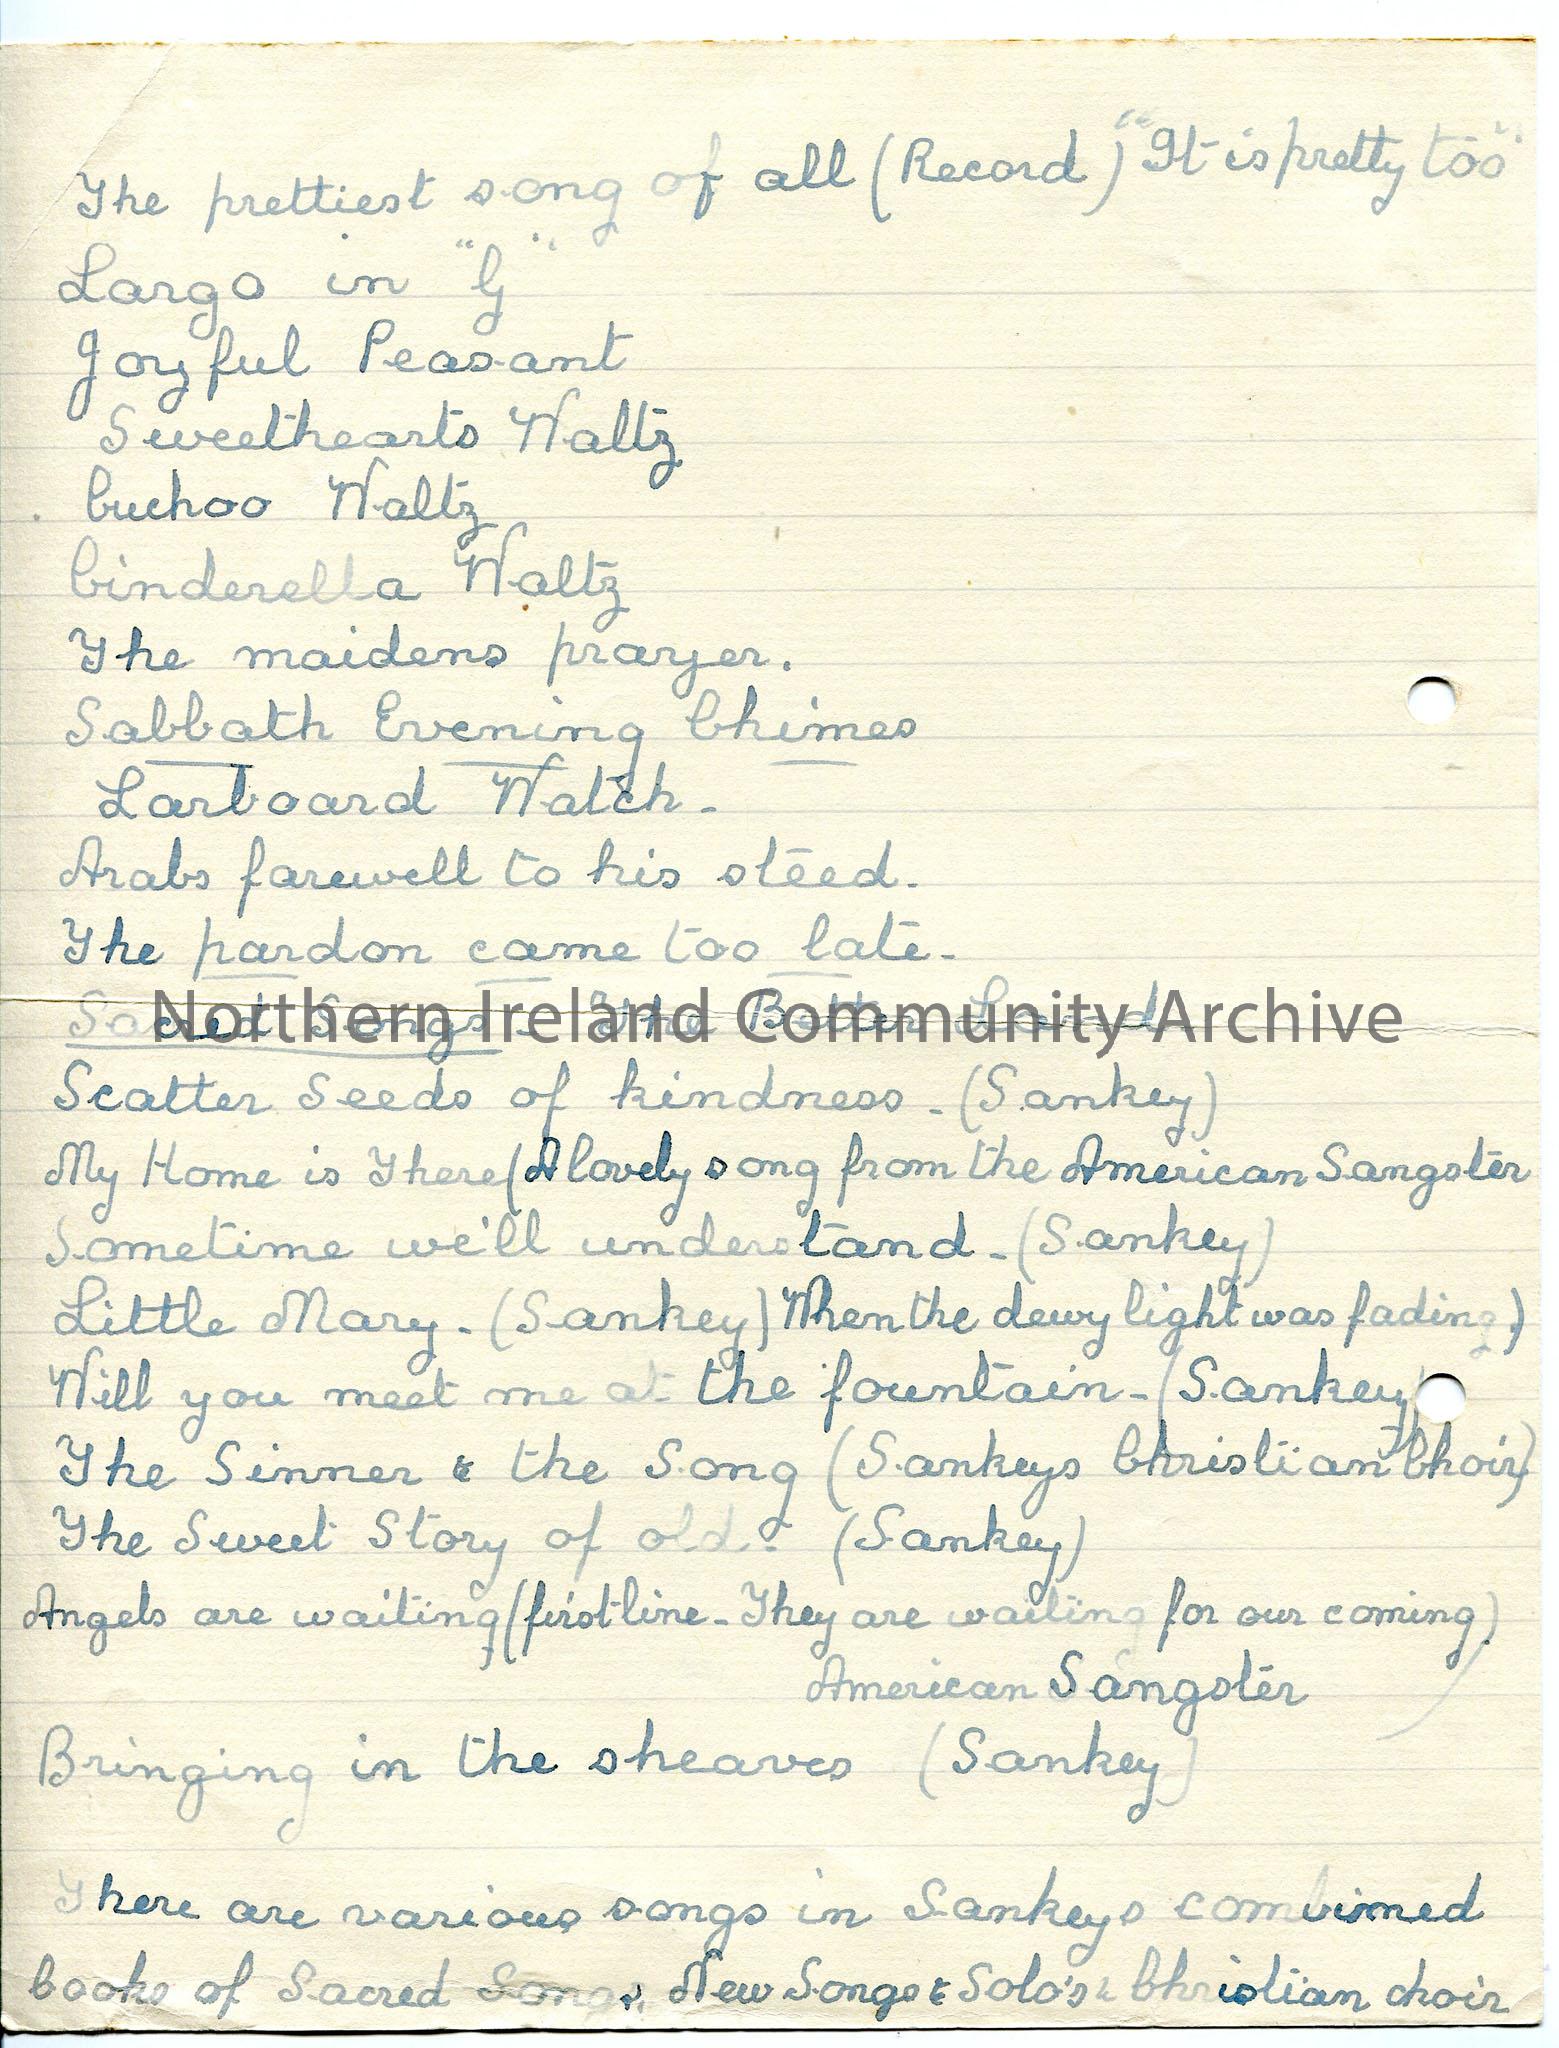 The prettiest song of all (Record) "It is pretty too"
Largo in "G"
Joyful Peasant
Sweethearts Waltz
Cuckoo Waltz
Cinderella Waltz
The maidens prayer.
Sabbath Evening Chimes
Larboard Watch -
Arabs farewell to his steed.
The pardon came too late -
Sacred Songs - The Better Land
Northern Ireland Community Archive
Scatter Seeds of kindness - (Sankey)
My Home is There (A lovely song from the American Sangster
Sometime we'll understand - (Sankey)
Little Mary - (Sankey) When the dewy light was fading,)
Will you meet me at the fountain - (Sankey)
The Sinner & the Song (Sankeys Christian Choir)
The Sweet Story of old: (Sankey)
Angels are waiting, (first line - They are waiting for our coming)
American Sangster
Bringing in the sheaves (Sankey)
There are various songs in Sankeys combined
books of Sacred Songs, New Songs & Solo's & Christian choir